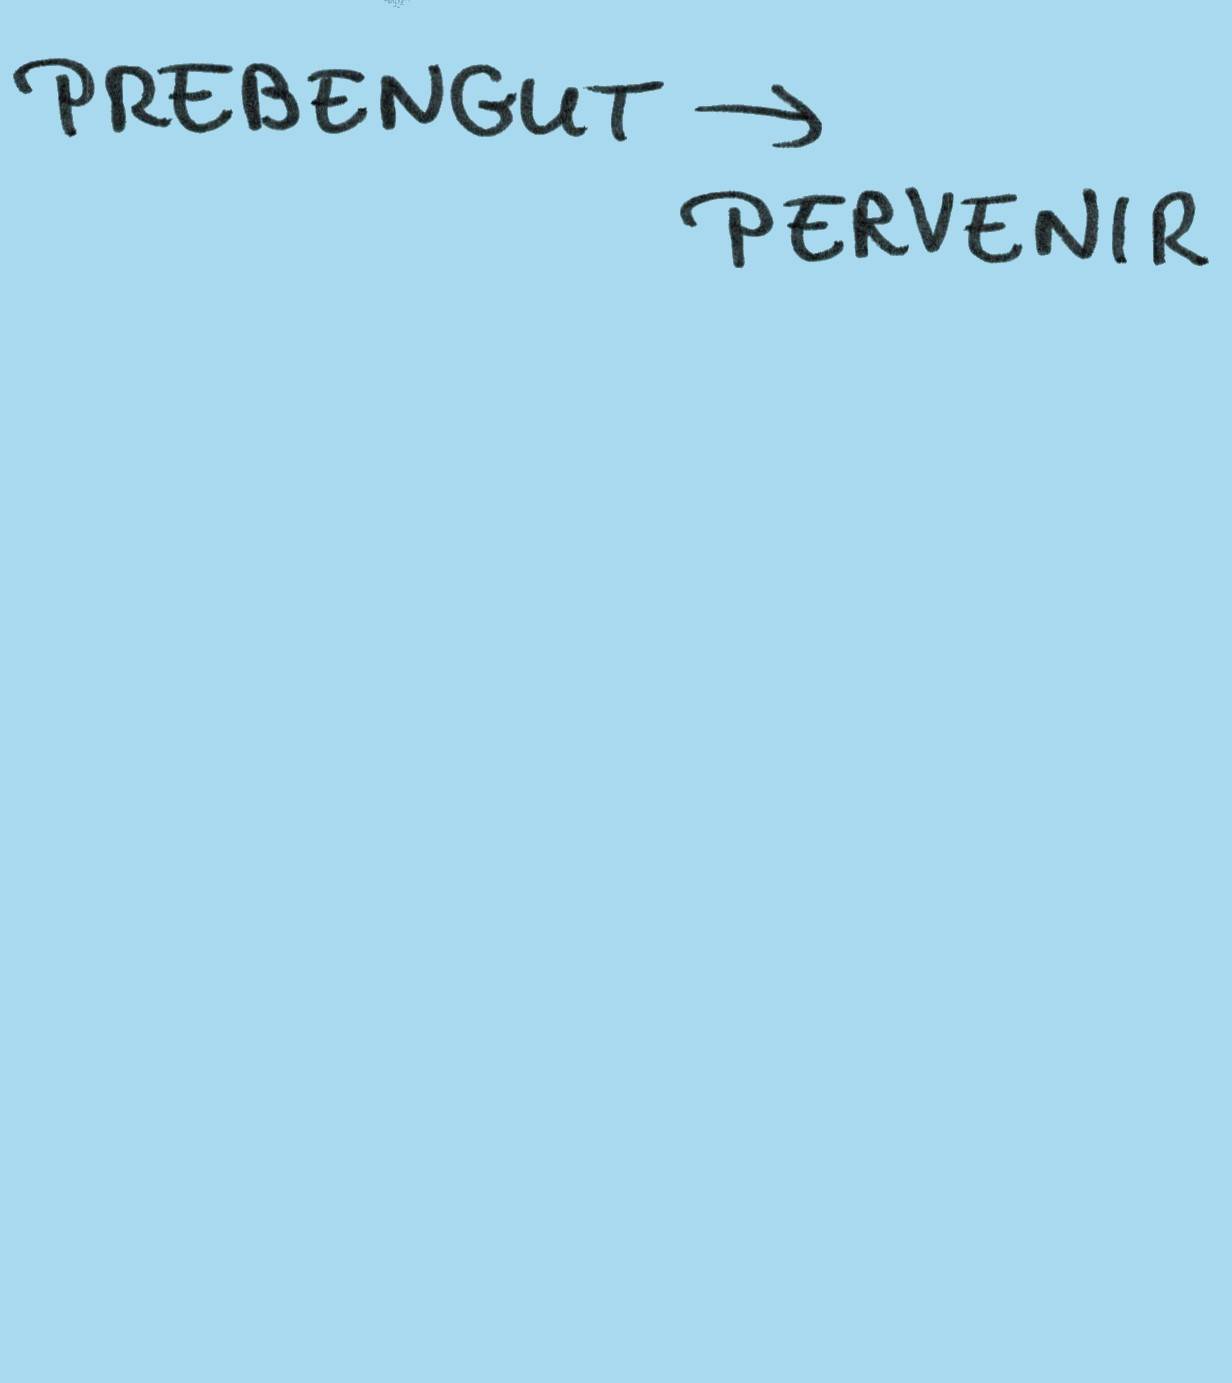 PREBENGUT →
PERVENIR